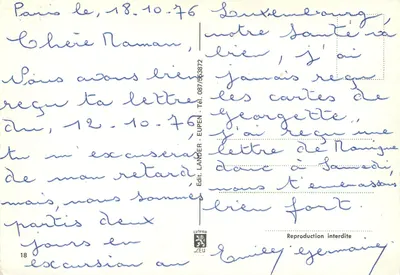 Paris le, 18.10.76
Chère Maman,
Nous avons bien
reçu ta lettre
du, 12.10.76,
tu m'excuseras
de mon retard,
mais, nous sommes
partis deux
jours en
excursion au
18
Edit. LANDER - EUPEN - Tél. 087/553872
Luxembourg,
notre santé va
bien, j'ai
jamais reçu
les cartes de
Georgette,
j'ai reçu une
lettre de Monique
donc à Samedi,
nous t'embrassons
bien fort.
Reproduction interdite
Emily Germaine